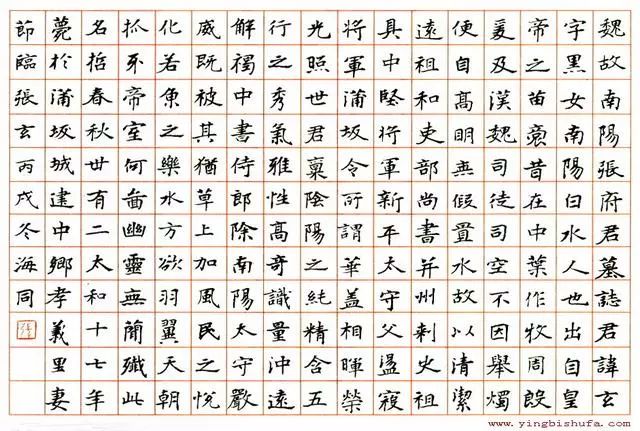 魏故南陽張府君墓誌君諱玄
字黑女南陽白水人也出自皇
帝之苗裔昔在中葉作牧周殷
爰及漢魏司徒司空不因舉燭
便自高明無假置水故以清潔
遠祖和吏部尚書并州刺史祖
具中堅將軍新平太守父盪寇
將軍蒲坂令所謂華蓋相暉榮
光照世君稟陰陽之純精含五
行之秀氣雅性高奇識量沖遠
解褐中書侍郎除南陽太守嚴
威既被其猶草上加風民之悅
化若魚之樂水方欲羽翼天朝
抓牙帝室何啚幽靈無簡殲此
名哲春秋卅有二太和十七年
薨於蒲坂城建中鄉孝義里妻
節臨張玄丙戌冬海同
www.yingbishufa.com